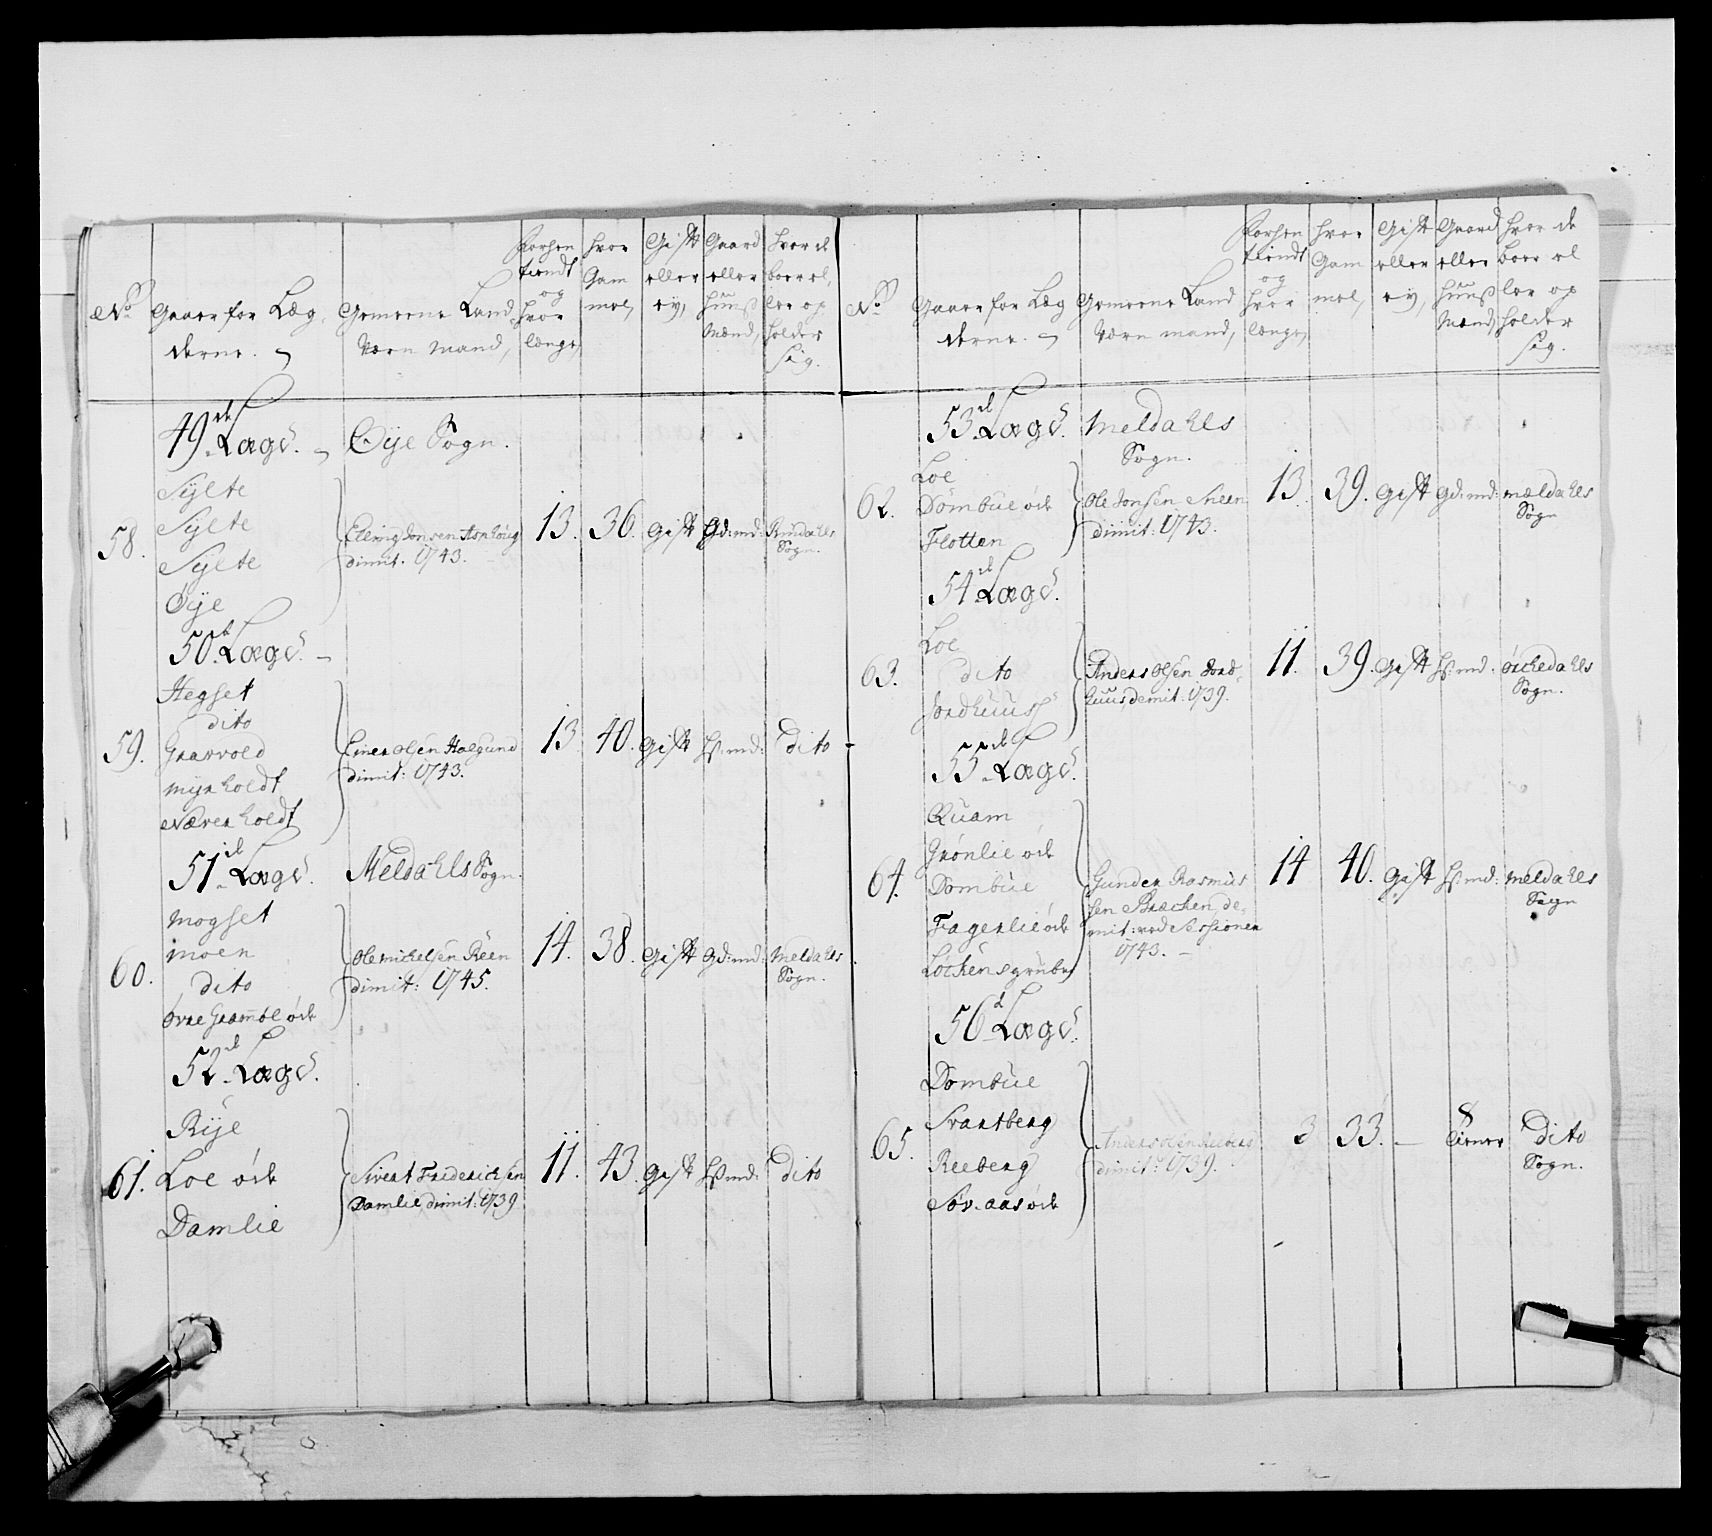 No.
Gaarer for Læg
derne.
Gemeene Land
Værn Mand,
Forhen
tiendt
og
hvor
længe,
hvor
Gam
mel,
Gift
eller
ey,
Gaard
eller
Huus
Mænd,
hvor de
boer el
ler op
holder
sig.
49de Lægd.
Øÿe Sogn.
58.
Sÿlte
Sÿlte
Sÿlte
Øÿe
dimit. 1743.
13.
36.
Gift
Gd:md:
Rindahls
Sogn.
50de Lægd.
59.
Hegset
dito
Graavold
Mÿrholdt
Næverholdt
Einer Olsen Halgund
dimit: 1743.
13.
40.
Gift
Hs:md:
dito
51de Lægd.
Meldahls Sogn.
60.
Mogset
Moen
dito
Øvre Gramboe øde
Ole Michelsen Reen
dimit: 1745.
14.
38.
Gift
Gd:md:
Meldahls
Sogn.
52de Lægd.
61.
Rÿe
Loe øde
Damlie
Sivert Friderichsen
Damlie, dimit: 1739.
11.
43.
Gift
Hs:md:
dito
No.
Gaarer for Læg
derne.
Gemeene Land
Værn Mand,
Forhen
tiendt
og
hvor
længe,
hvor
Gam
mel,
Gift
eller
ey,
Gaard
eller
Huus
Mænd,
hvor de
boer el
ler op
holder
sig.
53de Lægd.
Meldahls
Sogn.
62.
Loe
Dombue øde
Flotten
Ole Jonsen Sneen
dimit: 1743.
13.
39.
Gift
Gd:md:
Mældahls
Sogn
54de Lægd.
63.
Loe
dito
Jordhuus
Anders Olsen Jord-
huus, demit: 1739.
11.
39.
Gift
Hs:md:
Örchedahls
Sogn.
55de Lægd.
64.
Quam
Grønlie øde
Dombue
Fagerlie øde
Løchens grube
Gunder Rasmus
sen Bræchen, de-
mit: ved Sessionen
1743.
14
40.
Gift
Hs:md:
Meldahls
Sogn
56de Lægd.
65.
Dombue
Svartberg
Reeberg
Søv-aas øde
Anders Olsen Reeberg
dimit: 1739.
3
33.
—
Tiener
dito
Sogn.